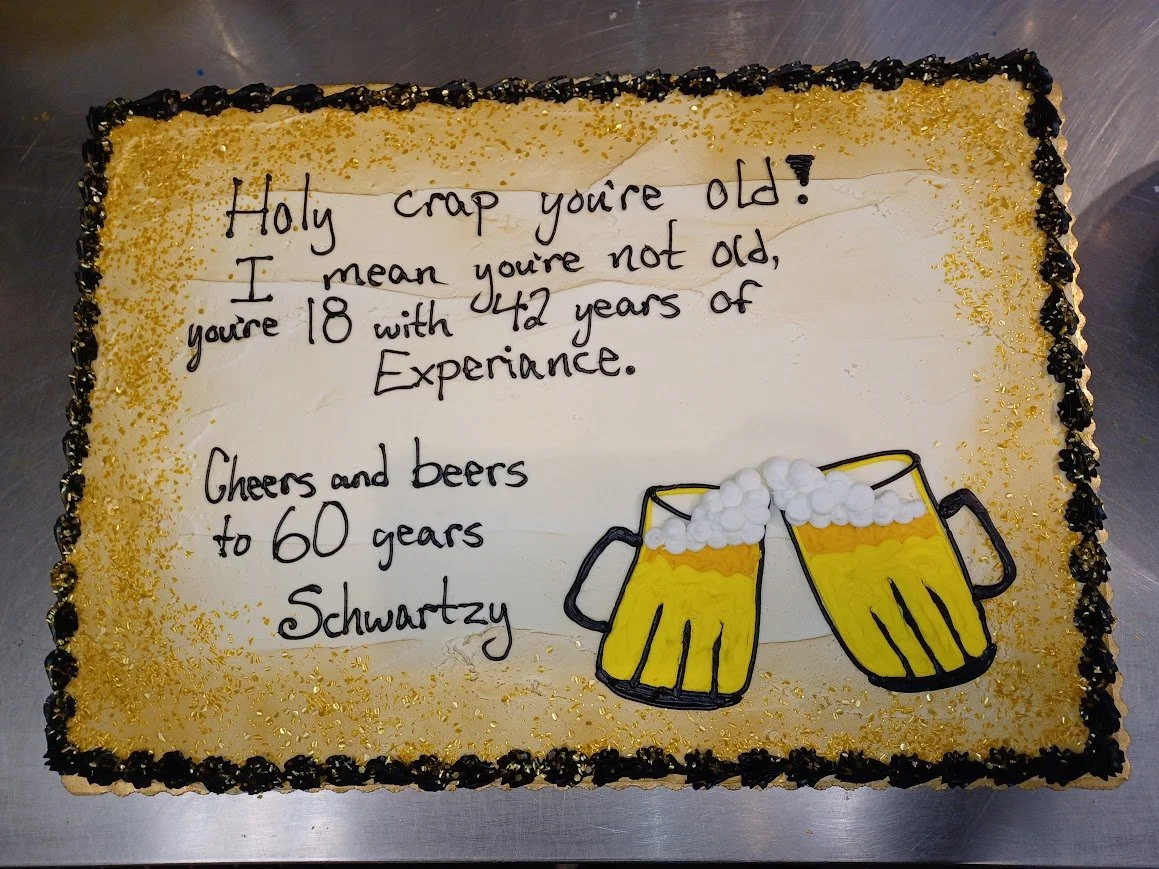 Holy crap you're old!
I mean you're not old,
you're 18 with 42 years of
Experiance.
Cheers and beers
to 60 years
Schwartzy